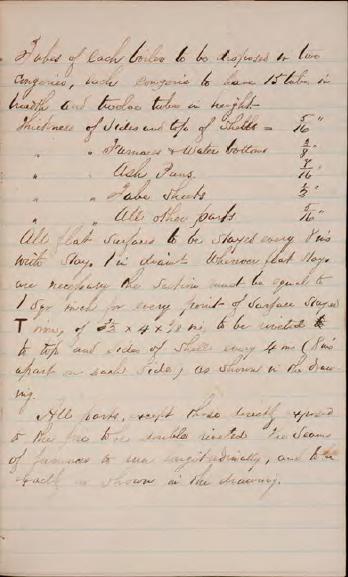 Tubes of each boiler to be disposed in two
congeries, each congerie to have 15 tubes in
breadth and twelve tubes in height
Thickness of Sides and top of Shells = 5/16"
" " Furnaces & Water bottoms 3/8"
" " Ash Pans 7/16"
" " Tube Sheets 1/2"
" " All other parts 5/16"
All flat surfaces to be stayed every 8 ins
with stays 1 in diamtr Wherever flat stays
are necessary the section must be equal to
1 sqr inch for every of surface stayed
T irons, of x 4 x ins, to be riveted
to top and sides of shell every 4 ins (8 ins
apart on each side) as shown in the draw-
ing.
All parts, except those directly exposed
to the fire to be double riveted the seams
of furnaces to run longitudinally, and to be
exactly as shown in the drawing.